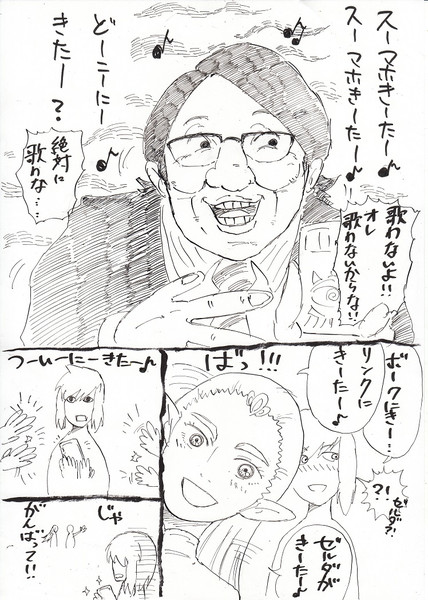 スーマホきーたー♪
スーマホきーたー♪
どーこにーに
きたー？
歌わないよ!!
オレ
歌わないからな!!
絶対に
歌わな…
ボークにきー…
リンクに
きーたー♪
ばっ!!!
?!
ゼルダ?!
ゼルダが
きーたー♪
つーいーにーきたー♪
じゃ
がんばって!!